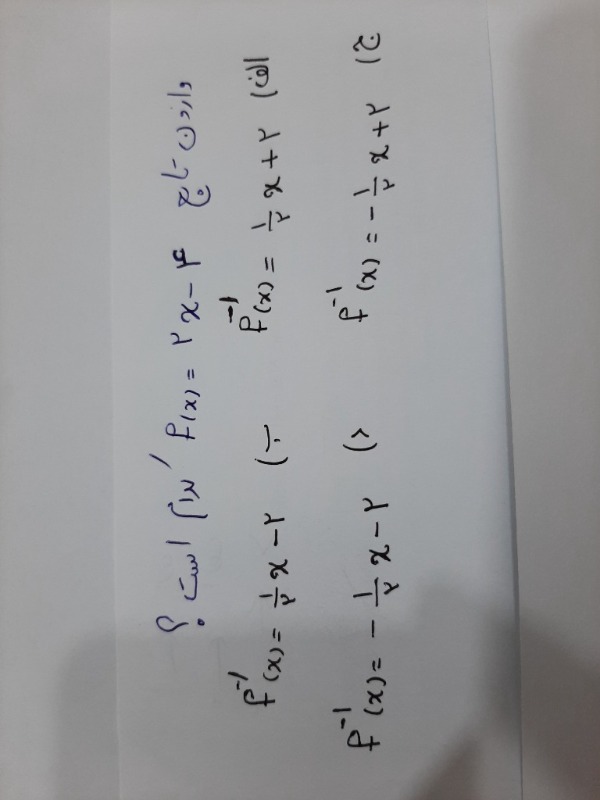 وارون تابع f(x) = ۲x − ۴ کدام است؟
الف) f⁻¹(x) = ۱/۲ x + ۲
ب) f⁻¹(x) = ۱/۲ x − ۲
ج) f⁻¹(x) = − ۱/۲ x + ۲
د) f⁻¹(x) = − ۱/۲ x − ۲